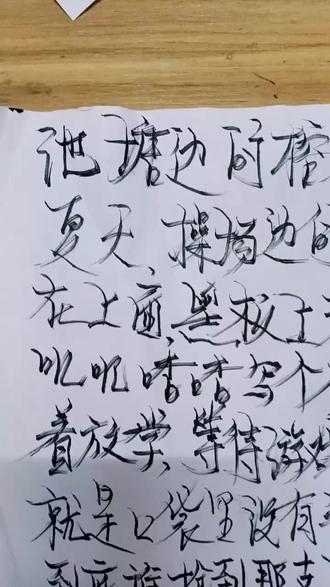 池塘边的榕
夏天、操场边的
在上面,黑板上
叽叽喳喳写个
着放学,等待游
就是口袋里没有
到底谁抢到那支